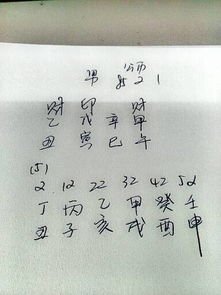 男 公历
85 2 1
财 印 财
乙 戊 辛 甲
丑 寅 巳 午
(5)
2 12 22 32 42 52
丁 丙 乙 甲 癸 壬
丑 子 亥 戌 酉 申